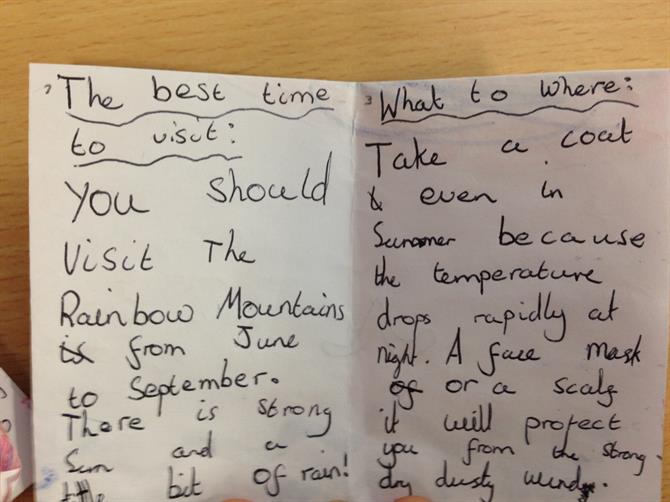 2 The best time
to visit:
You should
Visit The
Rainbow Mountains
is from June
to September.
There is strong
Sun and a
little bit of rain!
3 What to where:
Take a coat
& even in
Summer because
the temperature
drops rapidly at
night. A face mask
of or a scalf
it will protect
you from the strong
dry dusty wind.